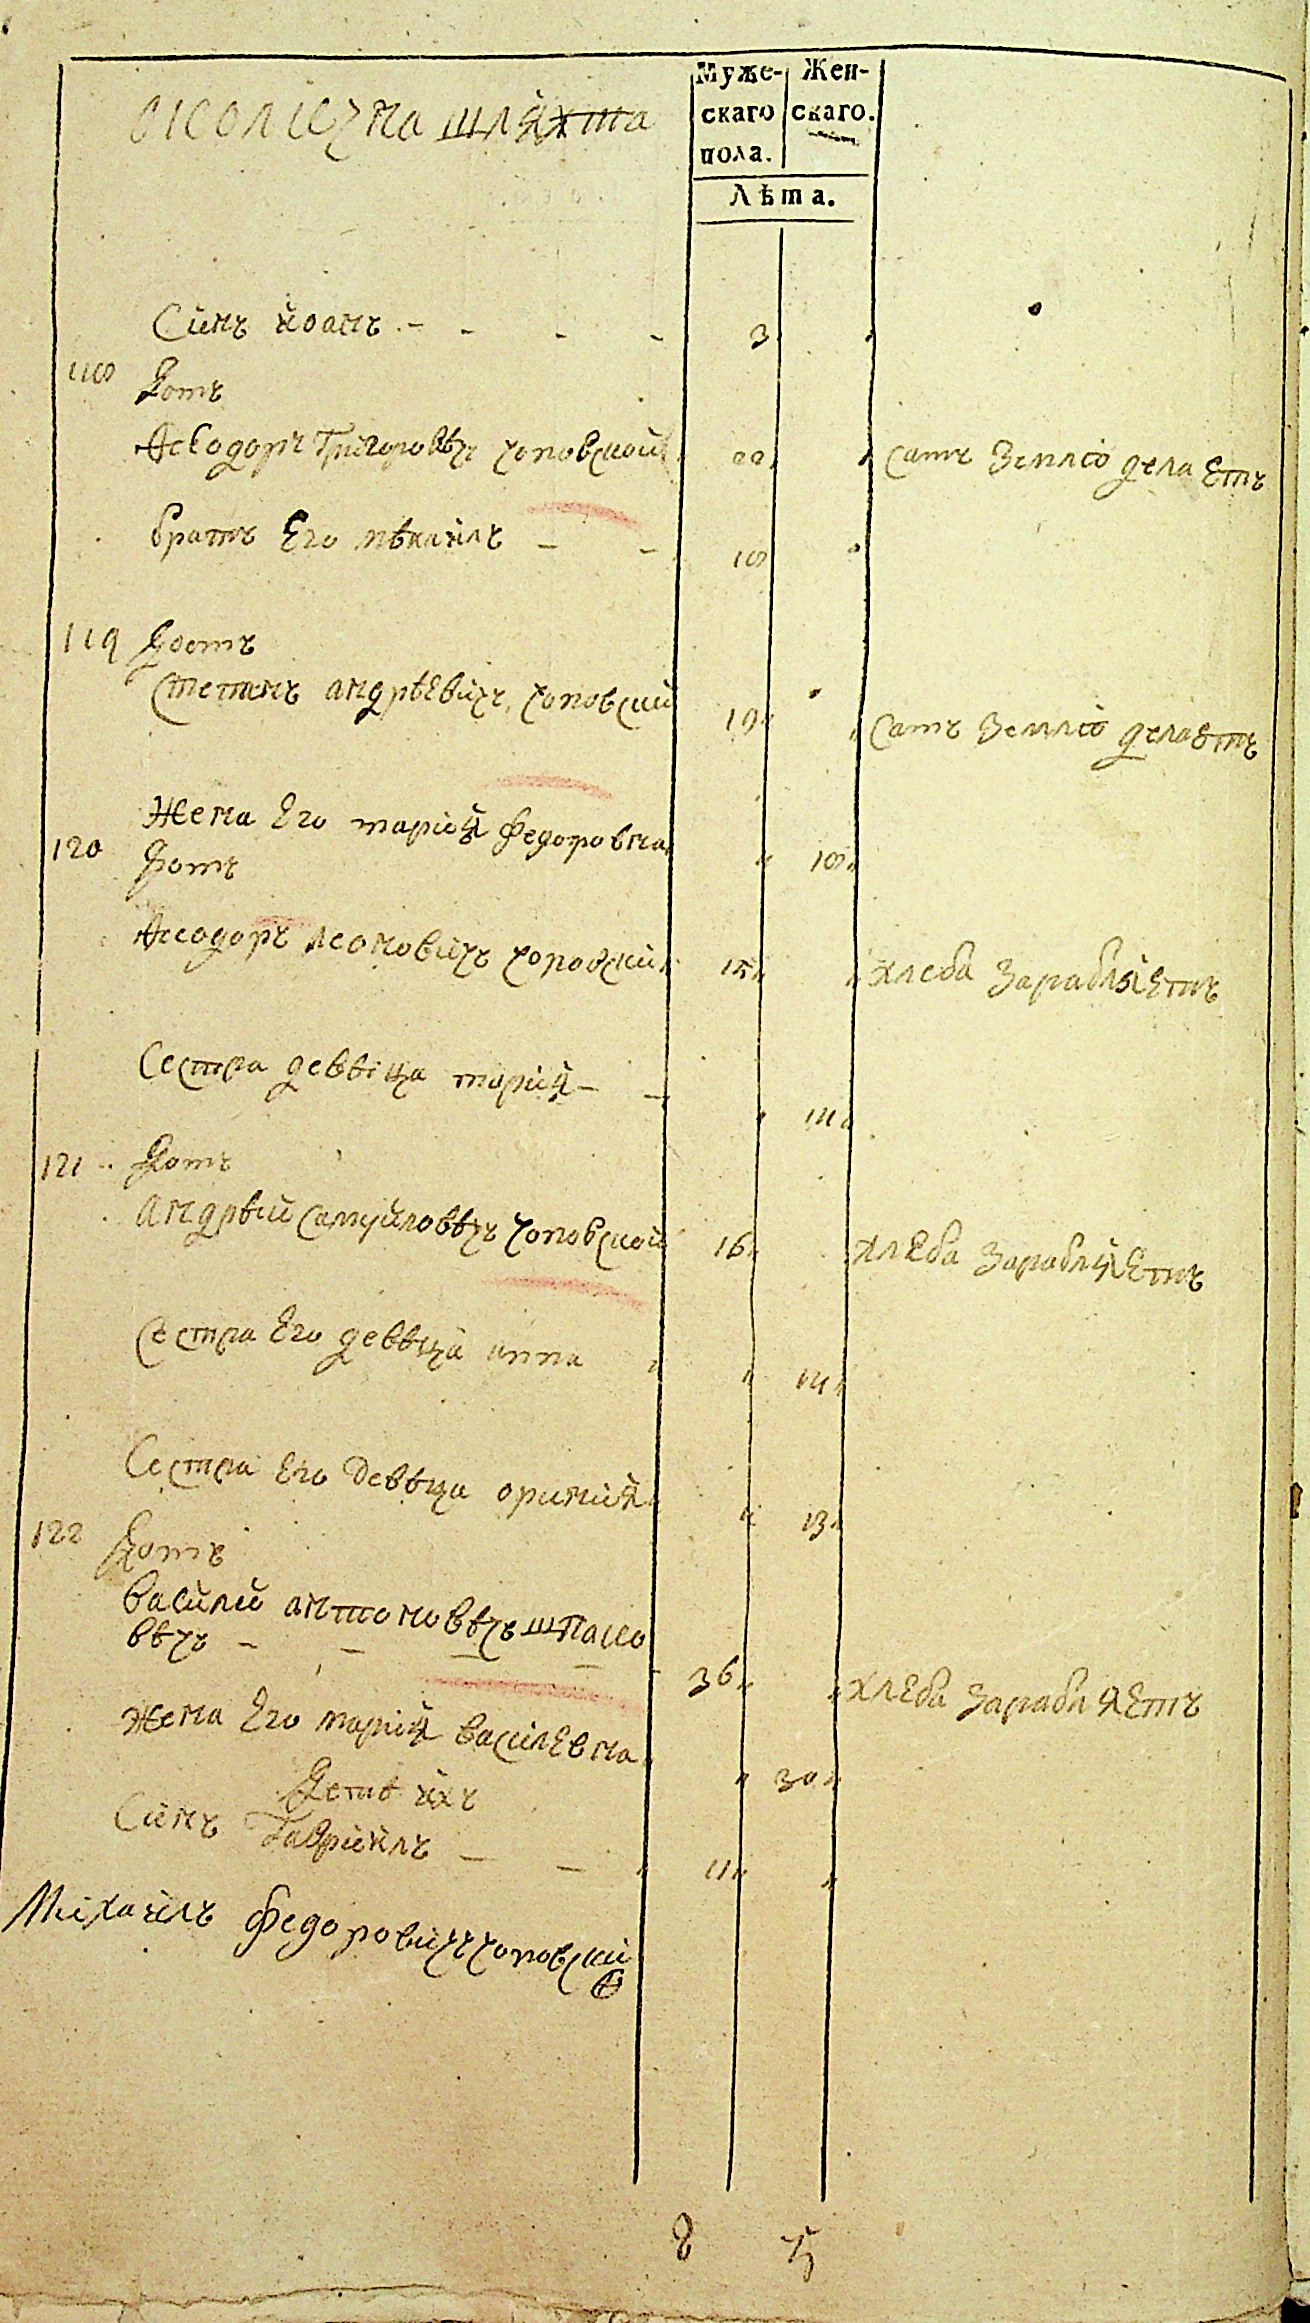 околична шляхта
Муже- Жен-
скаго скаго.
пола.
Лѣта.
Синъ Иоанъ - - - - 3
118 Домъ
Феодоръ Григоровѣчъ чоповской 22 Самъ землю делаетъ
братъ Его мѣхаилъ - - 18
119 Домъ
Степанъ андрѣЕвичъ, чоповский 19 Самъ землю делаетъ
Жена Его мария федоровна 18
120 Домъ
Феодоръ леоновичъ чоповский 15 хлеба зарабляЕтъ
Сестра девѣца мария - - 14
121 Домъ
андрѣй самуиловѣчъ чоповской 16 хлЕба зарабляЕтъ
Сестра Его девѣца анна 14
Сестра Его девѣца орина 13
122 Домъ
василий антоновѣчъ шпако
вѣчъ - - - - 36 хлЕба зарабляЕтъ
жена Его мария василЕвна 30
Дети ихъ
Синъ Гавриилъ - - 11
Михаилъ федоровичъ чоповский
8 5